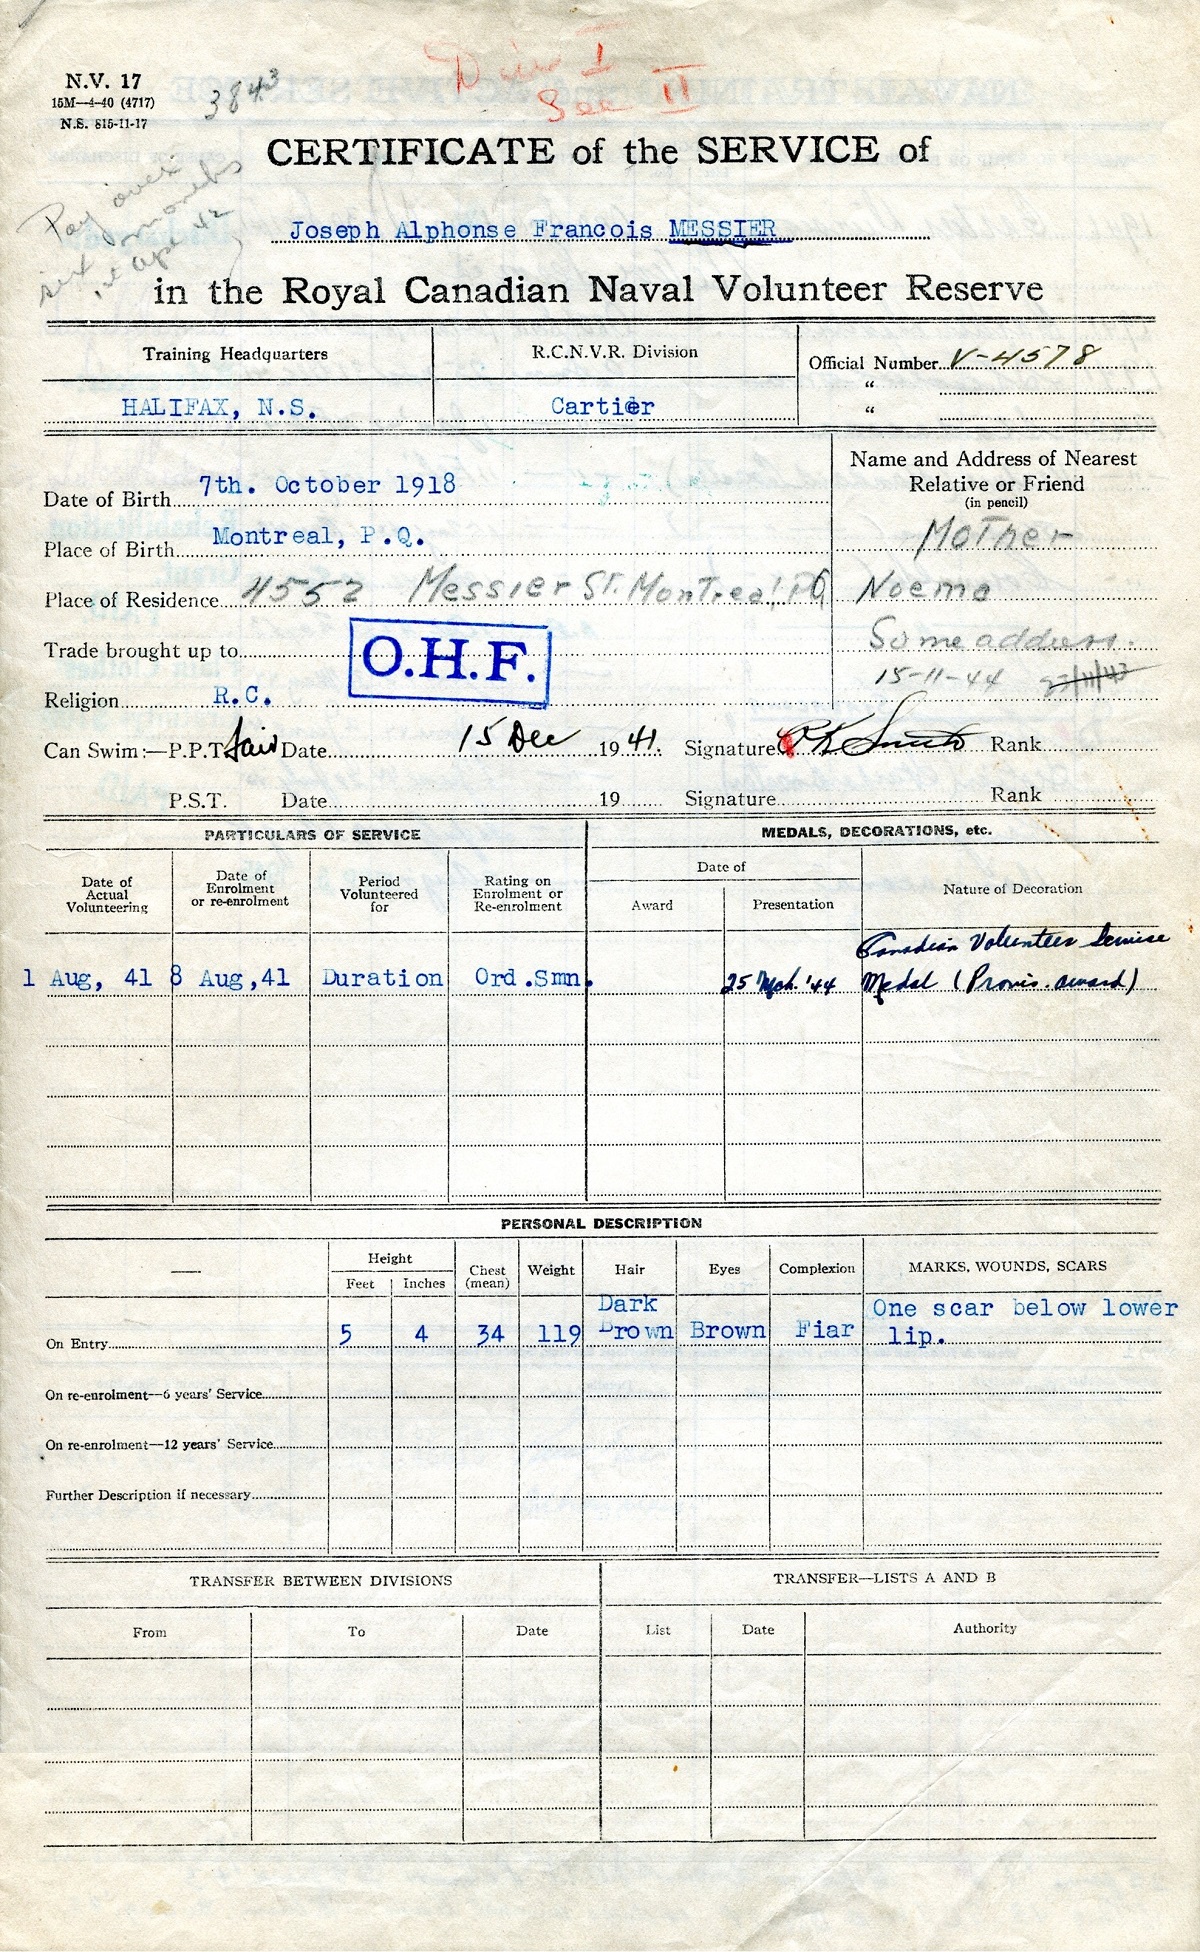 Div I
Sec II
N.V. 17
15M—4-40 (4717)
N.S. 815-11-17
3843
CERTIFICATE of the SERVICE of
Pay over
six months
1st Apr 42
Joseph Alphonse Francois MESSIER
in the Royal Canadian Naval Volunteer Reserve
Training Headquarters
R.C.N.V.R. Division
Official Number V-4578
"
HALIFAX, N.S.
Cartier
"
Name and Address of Nearest
Relative or Friend
(in pencil)
Date of Birth 7th. October 1918
Mother
Place of Birth Montreal, P.Q.
Place of Residence 4552 Messier St. Montreal PQ
Noema
Same address.
Trade brought up to
O.H.F.
15-11-44 23/11/43
Religion R.C.
Can Swim:—P.P.T. Fair Date 15 Dec 1941. Signature Rank
P.S.T. Date 19 Signature Rank
PARTICULARS OF SERVICE
MEDALS, DECORATIONS, etc.
Date of Actual Volunteering
Date of Enrolment or re-enrolment
Period Volunteered for
Rating on Enrolment or Re-enrolment
Date of
Award
Presentation
Nature of Decoration
Canadian Volunteer Service
1 Aug, 41 8 Aug,41 Duration Ord.Smn. 25 Mch. '44 Medal (Provis. award)
PERSONAL DESCRIPTION
—
Height
Feet
Inches
Chest (mean)
Weight
Hair
Eyes
Complexion
MARKS, WOUNDS, SCARS
Dark
One scar below lower
On Entry 5 4 34 119 Brown Brown Fiar lip.
On re-enrolment—6 years' Service
On re-enrolment—12 years' Service
Further Description if necessary
TRANSFER BETWEEN DIVISIONS
TRANSFER—LISTS A AND B
From
To
Date
List
Date
Authority